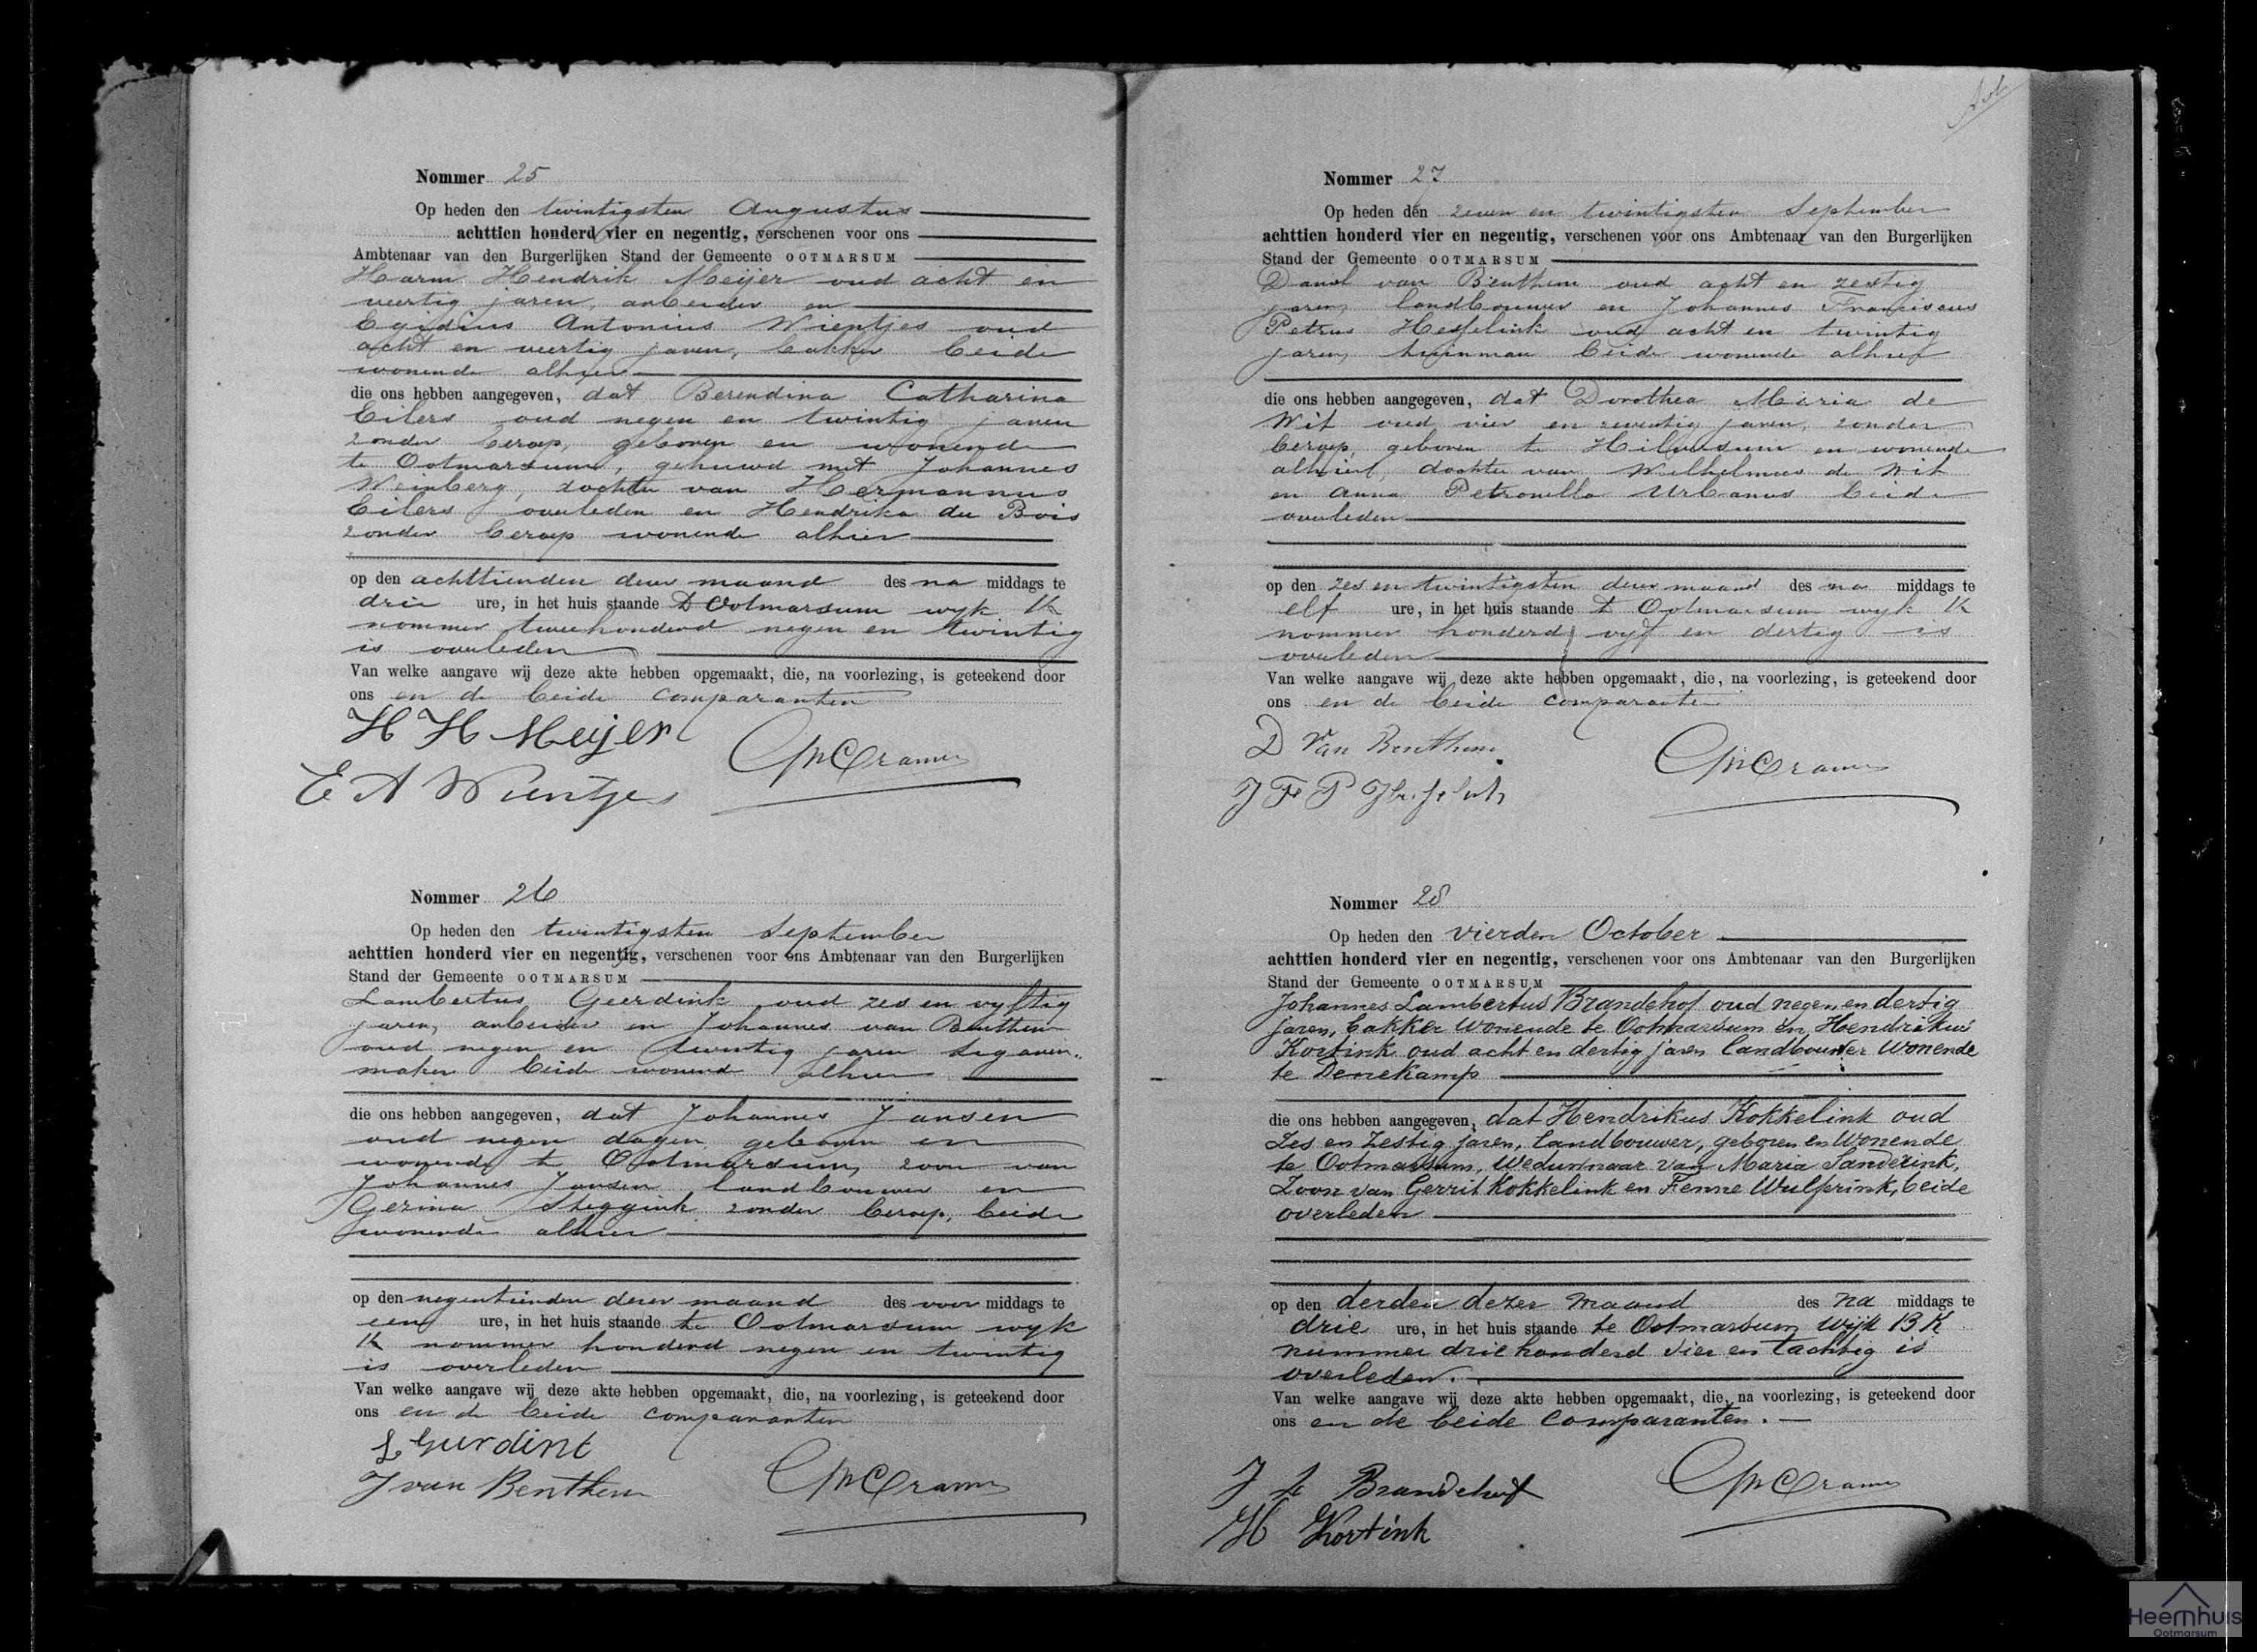 Nommer 25
Op heden den twintigsten Augustus
achttien honderd vier en negentig, verschenen voor ons
Ambtenaar van den Burgerlijken Stand der Gemeente OOTMARSUM
Harm Hendrik Meijer oud acht en
veertig jaren, arbeider en
Egidius Antonius Wientjes oud
acht en veertig jaren, bakker beide
wonende alhier
die ons hebben aangegeven, dat Berendina Catharina
Eilers oud negen en twintig jaren
zonder beroep, geboren en wonende
te Ootmarsum, gehuwd met Johannes
Weinberg, dochter van Hermannus
Eilers overleden en Hendrika du Bois
zonder beroep wonende alhier
op den achttienden dezer maand des na middags te
drie ure, in het huis staande te Ootmarsum wyk K
nommer tweehonderd negen en twintig
is overleden
Van welke aangave wij deze akte hebben opgemaakt, die, na voorlezing, is geteekend door
ons en de beide comparanten
H H Meijer
E A Wientjes
Cramer
Nommer 26
Op heden den twintigsten September
achttien honderd vier en negentig, verschenen voor ons Ambtenaar van den Burgerlijken
Stand der Gemeente OOTMARSUM
Lambertus Geerdink oud zes en vyftig
jaren, arbeider en Johannes van Benthem
oud negen en twintig jaren sigaren-
maker beide wonende alhier
die ons hebben aangegeven, dat Johannes Jansen
oud negen dagen geboren en
wonende te Ootmarsum, zoon van
Johannes Jansen landbouwer en
Gezina Steggink zonder beroep, beide
wonende alhier
op den negentienden dezer maand des voor middags te
een ure, in het huis staande te Ootmarsum wyk
K nommer honderd negen en twintig
is overleden
Van welke aangave wij deze akte hebben opgemaakt, die, na voorlezing, is geteekend door
ons en de beide comparanten
L Geerdink
J van Benthem
Cramer
Nommer 27
Op heden den zeven en twintigsten September
achttien honderd vier en negentig, verschenen voor ons Ambtenaar van den Burgerlijken
Stand der Gemeente OOTMARSUM
van Benthem oud acht en zestig
jaren, landbouwer en Johannes Franciscus
Petrus Hesselink oud acht en twintig
jaren, tuinman beide wonende alhier
die ons hebben aangegeven, dat Dorothea Maria de
Wit oud vier en zeventig jaren, zonder
beroep, geboren te Hilversum en wonende
alhier, dochter van Wilhelmus de Wit
en Anna Petronella Urbanus beide
overleden
op den zes en twintigsten dezer maand des na middags te
elf ure, in het huis staande te Ootmarsum wyk K
nommer honderd vyf en dertig is
overleden
Van welke aangave wij deze akte hebben opgemaakt, die, na voorlezing, is geteekend door
ons en de beide comparanten
D van Benthem
J F P Hesselink
Cramer
Nommer 28
Op heden den vierden October
achttien honderd vier en negentig, verschenen voor ons Ambtenaar van den Burgerlijken
Stand der Gemeente OOTMARSUM
Johannes Lambertus Brandehof oud negen en dertig
jaren, bakker wonende te Ootmarsum en Hendrikus
Kortink oud acht en dertig jaren landbouwer wonende
te Denekamp
die ons hebben aangegeven, dat Hendrikus Kokkelink oud
Zes en Zestig jaren, landbouwer, geboren en wonende
te Ootmarsum, Weduwnaar van Maria Sanderink,
Zoon van Gerrit Kokkelink en Fenne Wulprink, beide
overleden
op den derden dezer maand des na middags te
drie ure, in het huis staande te Ootmarsum Wijk B K
nummer drie honderd vier en tachtig is
overleden.
Van welke aangave wij deze akte hebben opgemaakt, die, na voorlezing, is geteekend door
ons en de beide comparanten.
J L Brandehof
H Kortink
Cramer
Heemhuis
Ootmarsum